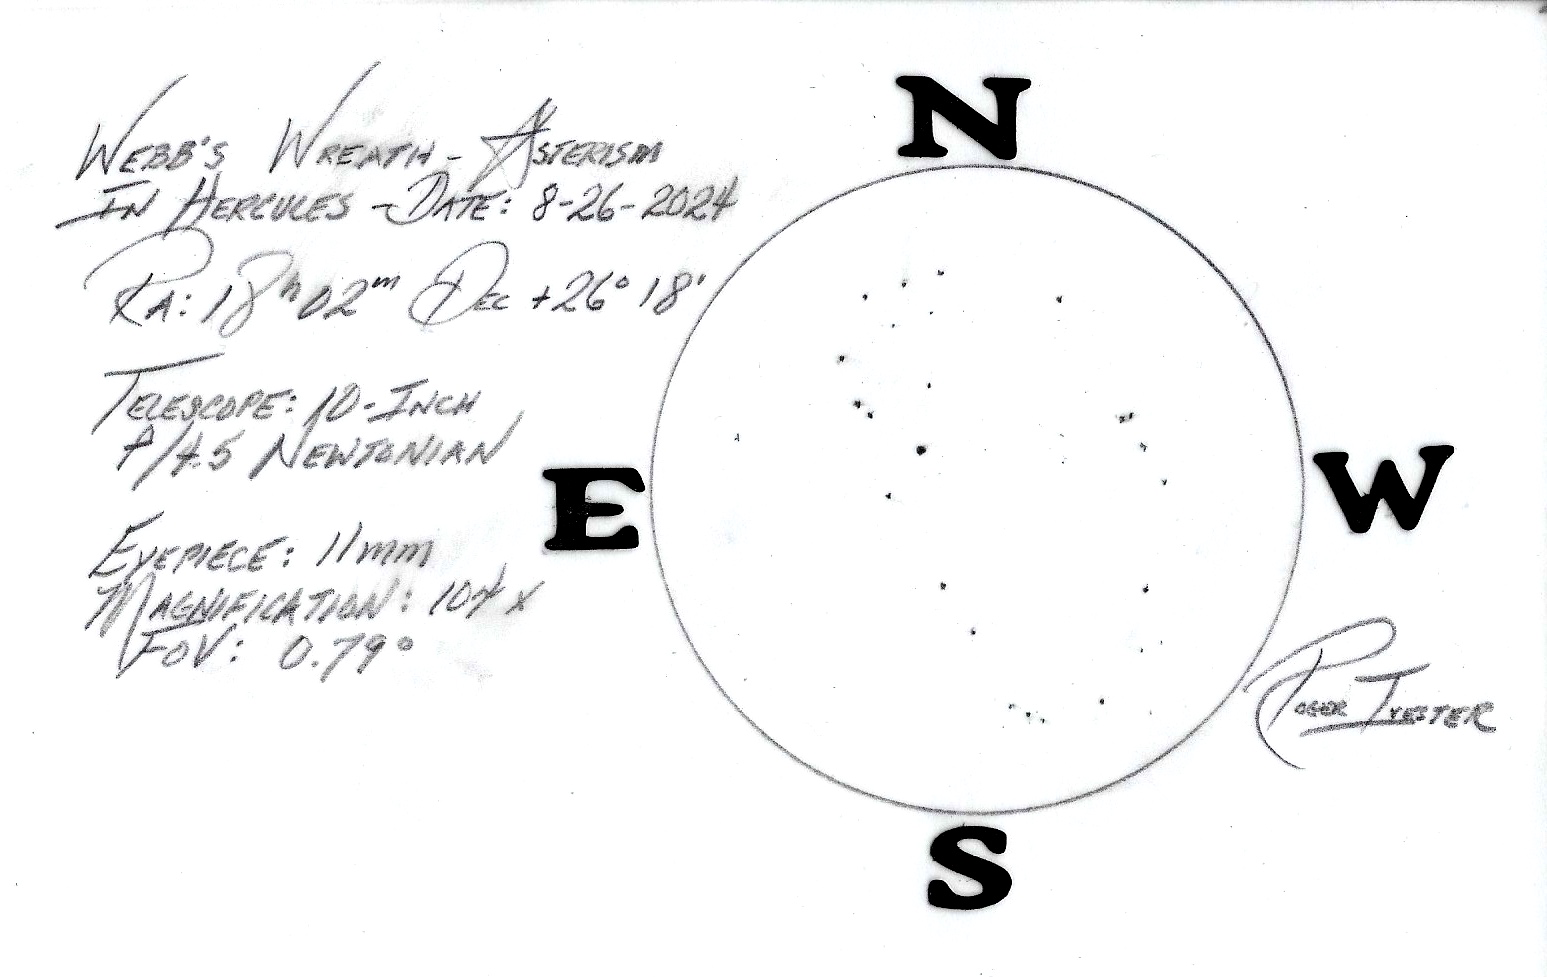 WEBB'S WREATH - ASTERISM
IN HERCULES - DATE: 8-26-2024
RA: 18h 02m DEC +26° 18'
TELESCOPE: 10-INCH
f/4.5 NEWTONIAN
EYEPIECE: 11mm
MAGNIFICATION: 104x
FOV: 0.79°
N
E
W
S
ROGER IVESTER